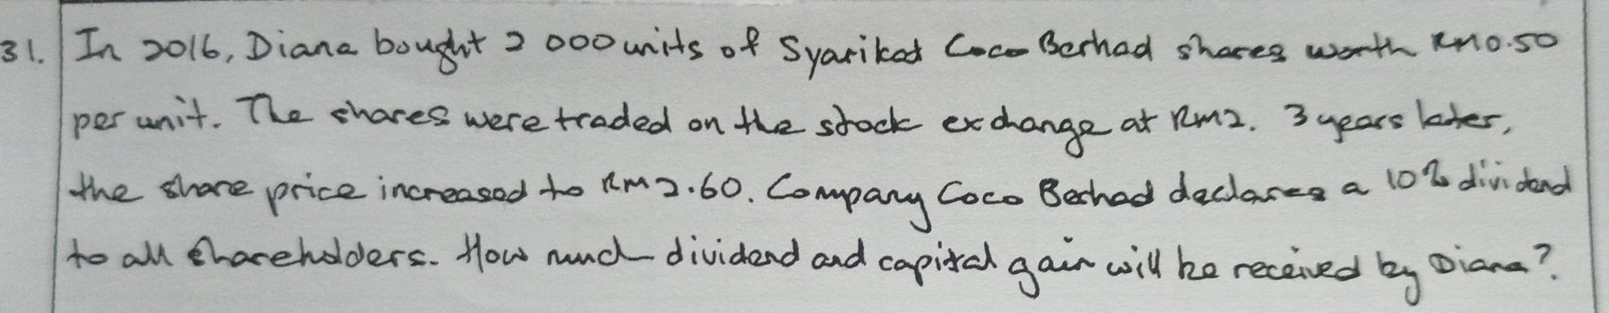 31. In 2016, Diana bought 2 000 units of Syarikat Coco Berhad shares worth RM0.50
per unit. The shares were traded on the stock exchange at RM2. 3 years later,
the share price increased to RM2.60. Company Coco Berhad declares a 10% dividend
to all shareholders. How much dividend and capital gain will be received by Diana?